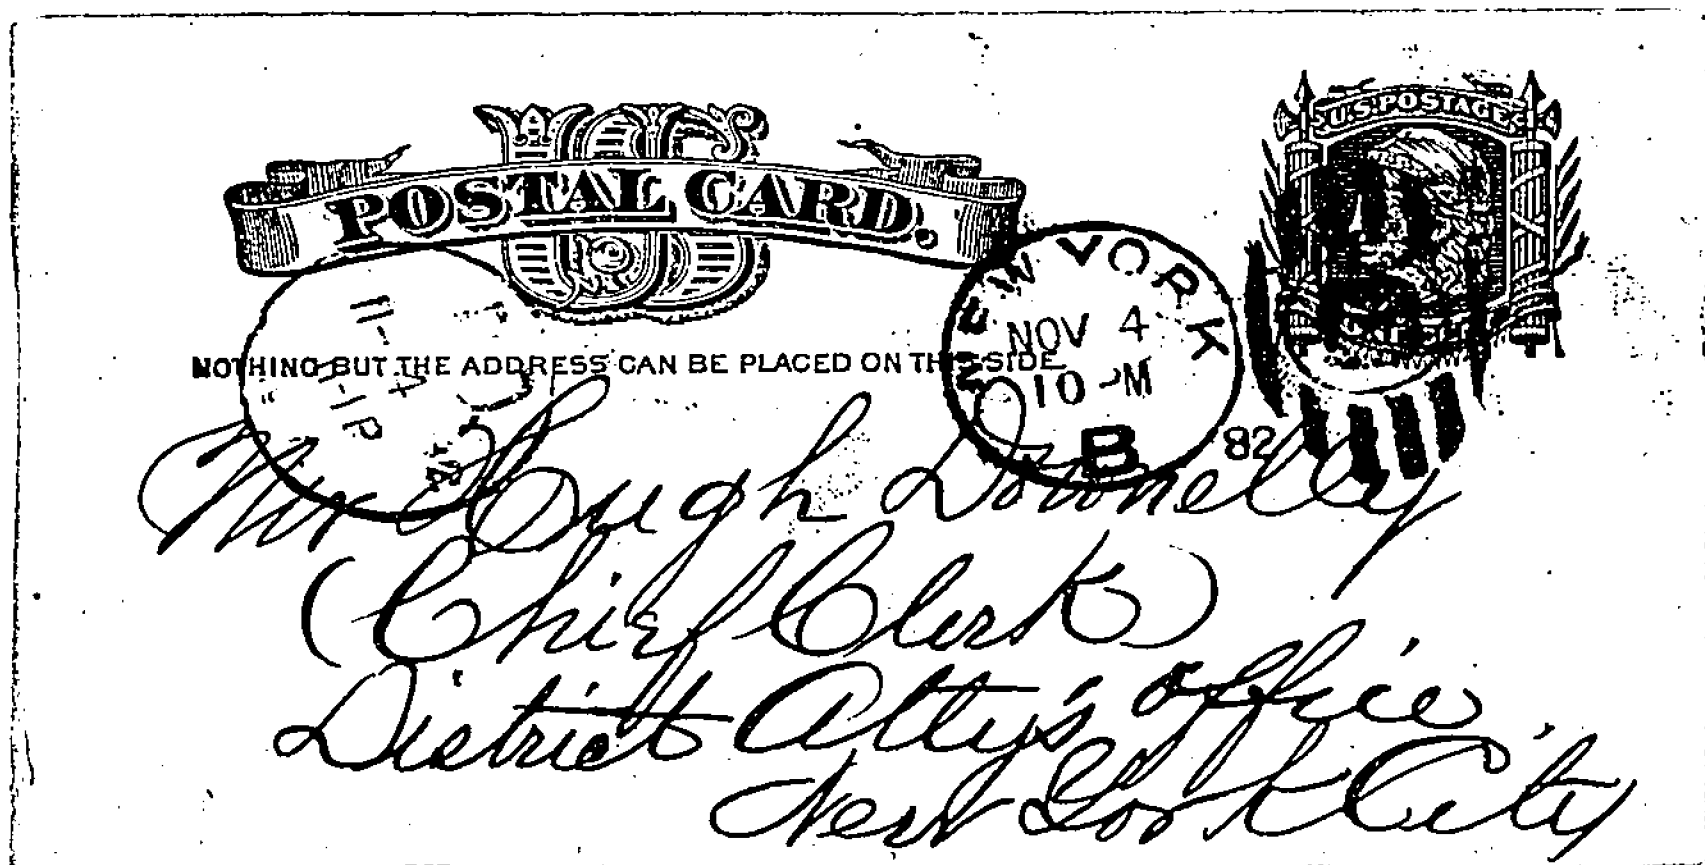 U.S. POSTAGE
US
POSTAL CARD.
NEW YORK
NOV 4
10 PM
B
82
11-4
11-1P
NOTHING BUT THE ADDRESS CAN BE PLACED ON THIS SIDE
Mr Hugh Donnelly
(Chief Clerk)
District Atty's office
New York City